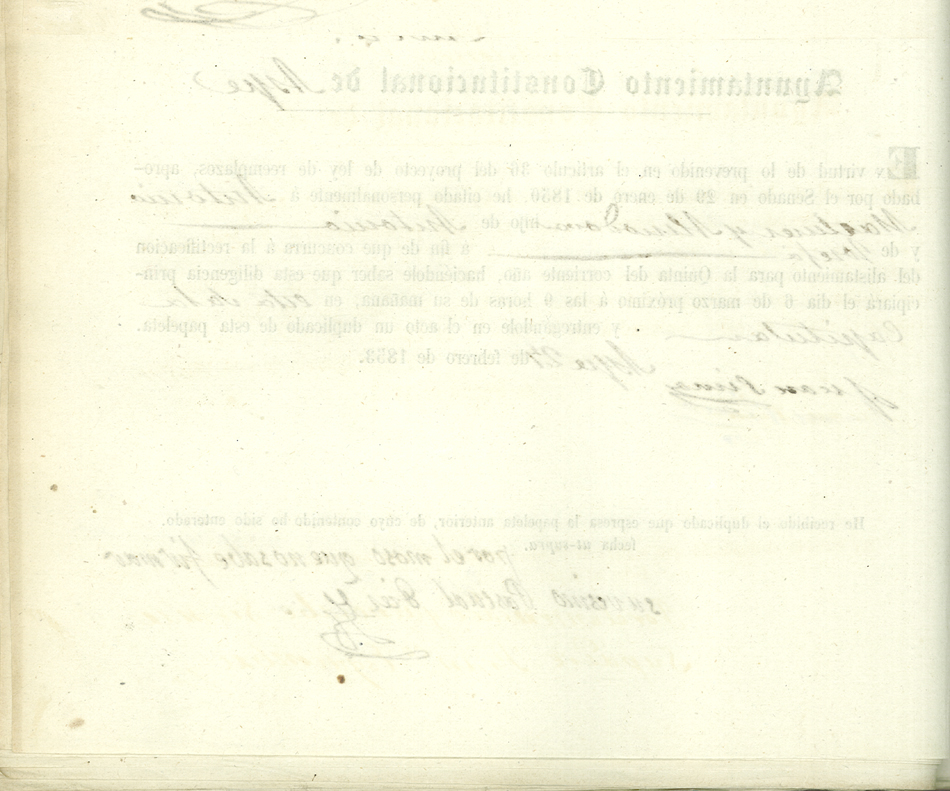 Ayuntamiento Constitucional de Aspe
En virtud de lo prevenido en el artículo 36 del proyecto de ley de reemplazos, apro-
bado por el Senado en 29 de enero de 1850, he citado personalmente á Antonio
Martinez y Almodovar hijo de Antonio
y de Josefa á fin de que concurra á la rectificacion
del alistamiento para la Quinta del corriente año, haciéndole saber que esta diligencia prin-
cipiará el dia 6 de marzo próximo á las 9 horas de su mañana, en esta Sala
Capitular y entregándole en el acto un duplicado de esta papeleta.
Aspe 27 de febrero de 1853.
Juan
He recibido el duplicado que espresa la papeleta anterior, de cuyo contenido he sido enterado.
fecha ut-supra.
por el moso que no sabe firmar
su vesino Pascual